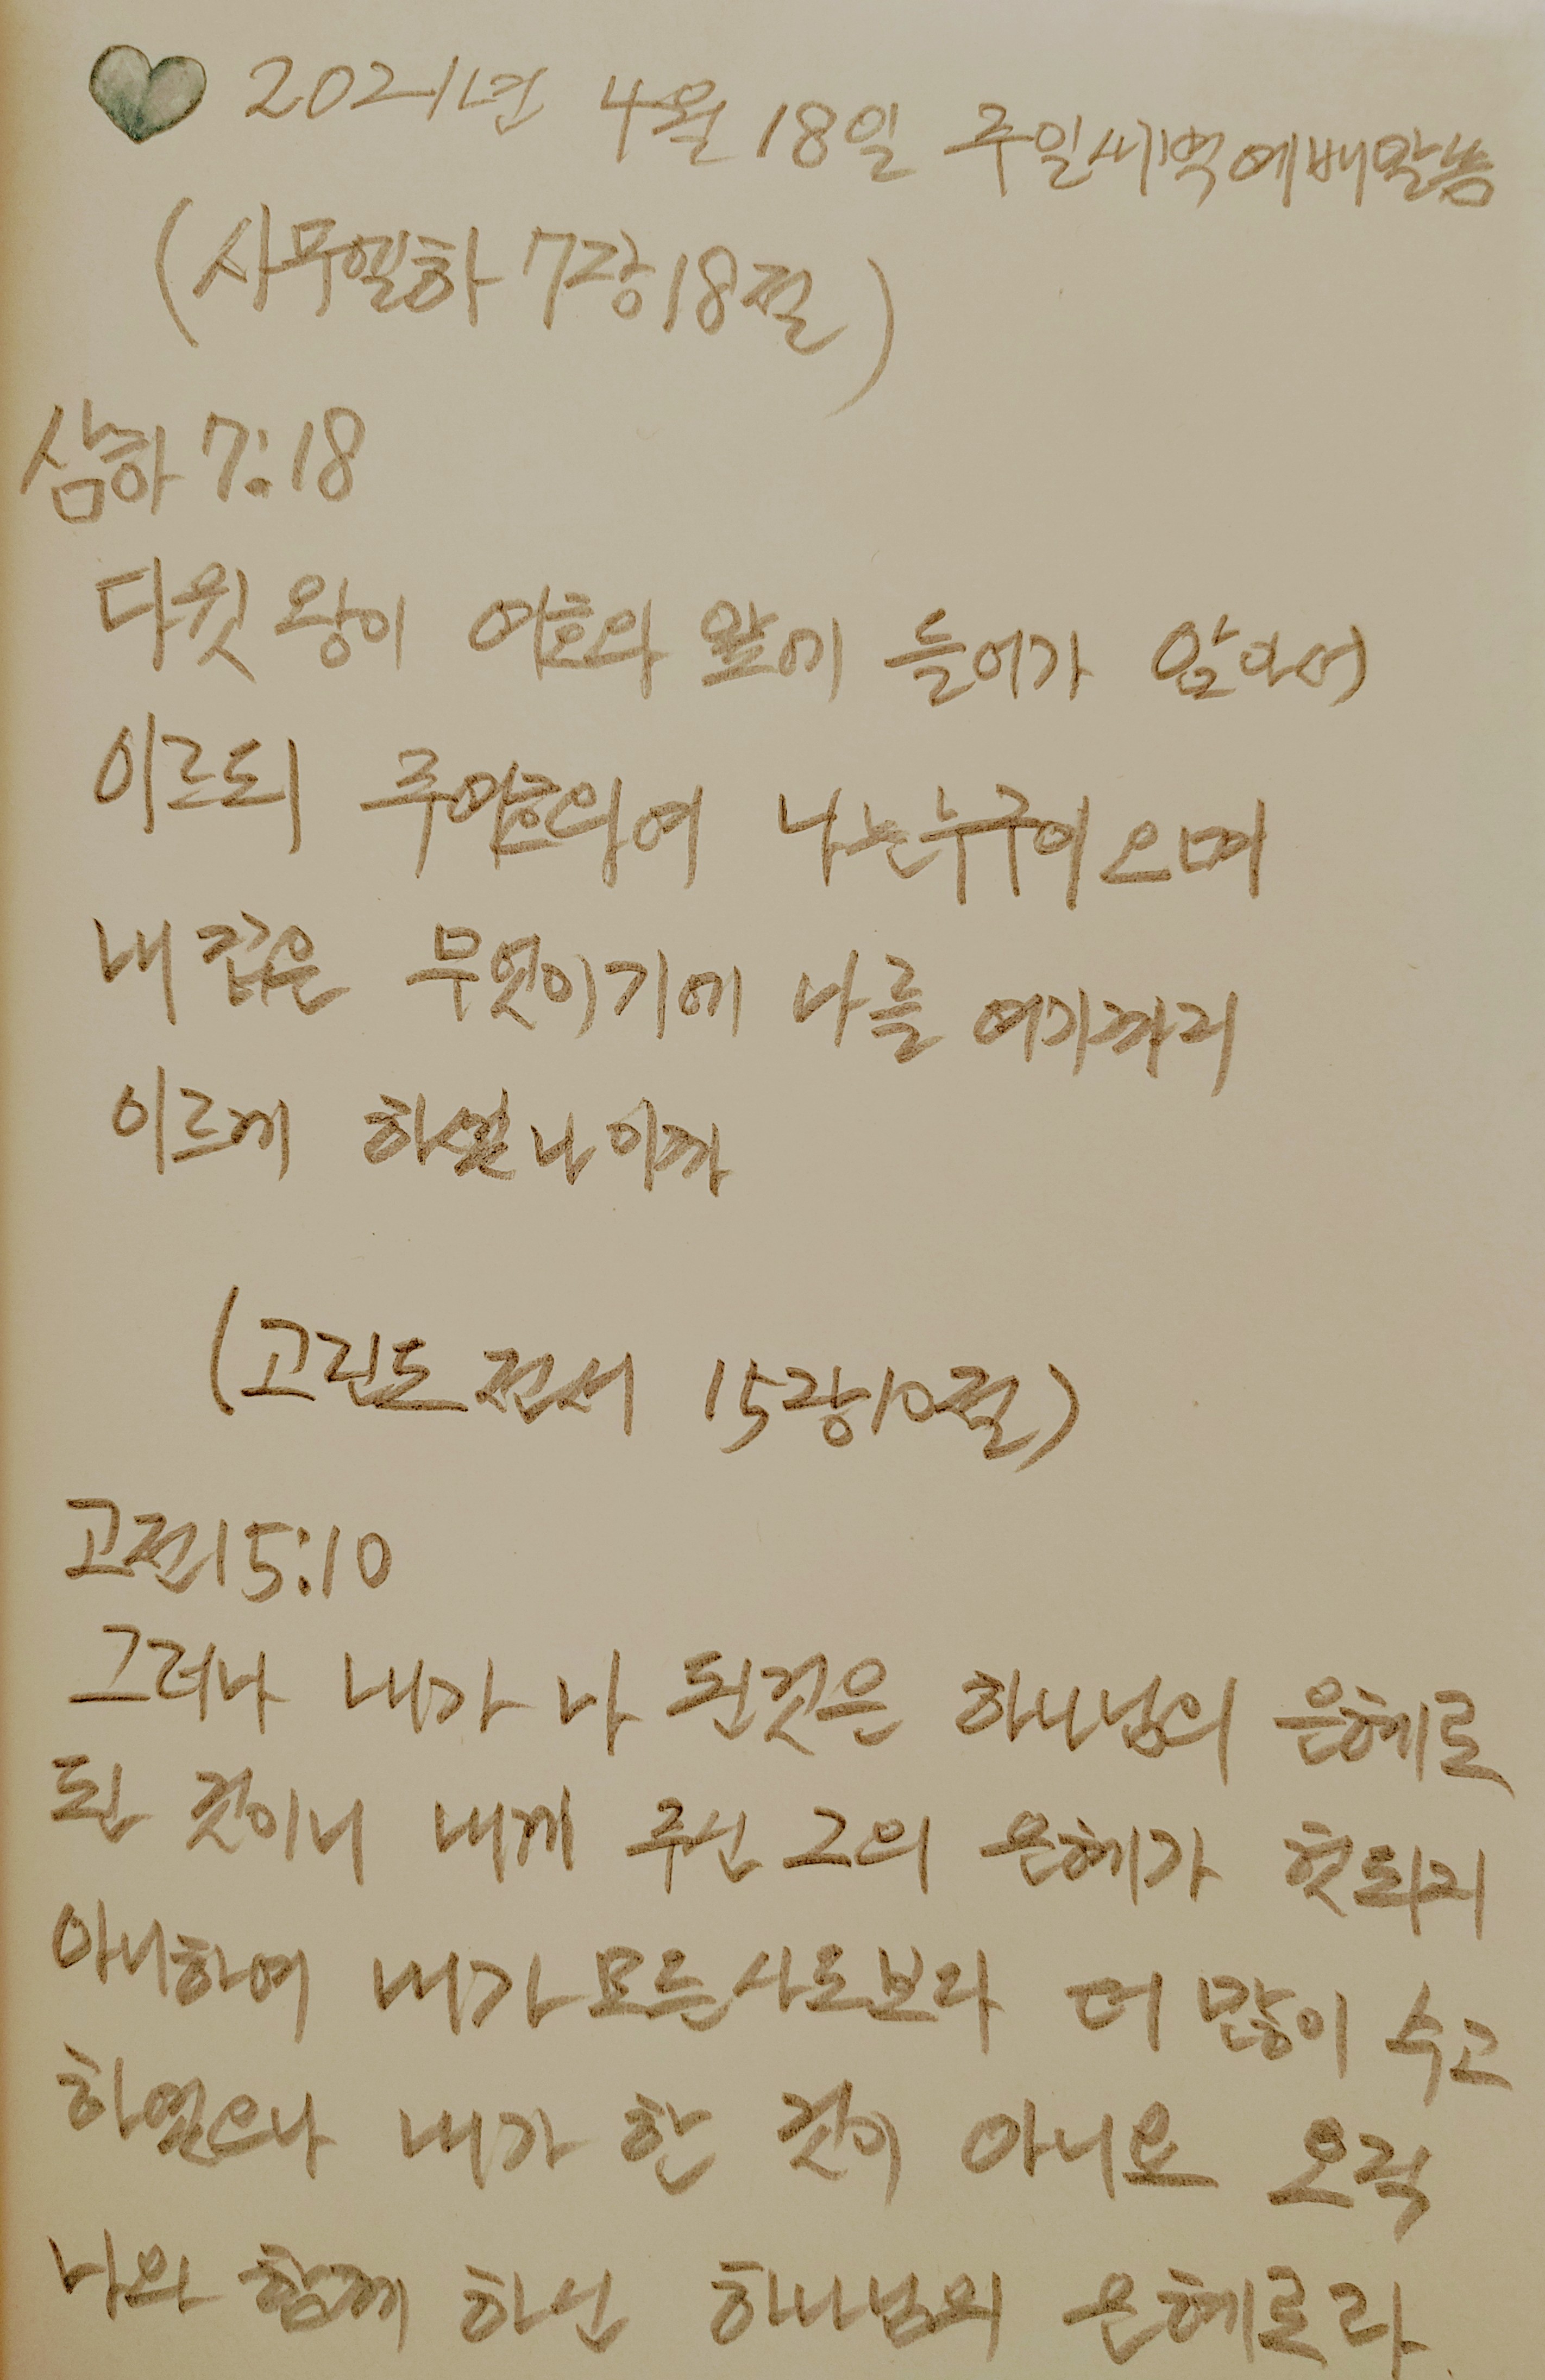 2021년 4월 18일 주일새벽예배말씀
(사무엘하 7장18절)
삼하 7:18
다윗 왕이 여호와 앞에 들어가 앉아서
이르되 주여호와여 나는누구이오며
내 집은 무엇이기에 나를 여기까지
이르게 하셨나이까
(고린도 전서 15장10절)
고전15:10
그러나 내가 나 된것은 하나님의 은혜로
된 것이니 내게 주신 그의 은혜가 헛되지
아니하여 내가 모든사도보다 더 많이 수고
하였으나 내가 한 것이 아니요 오직
나와 함께 하신 하나님의 은혜로라